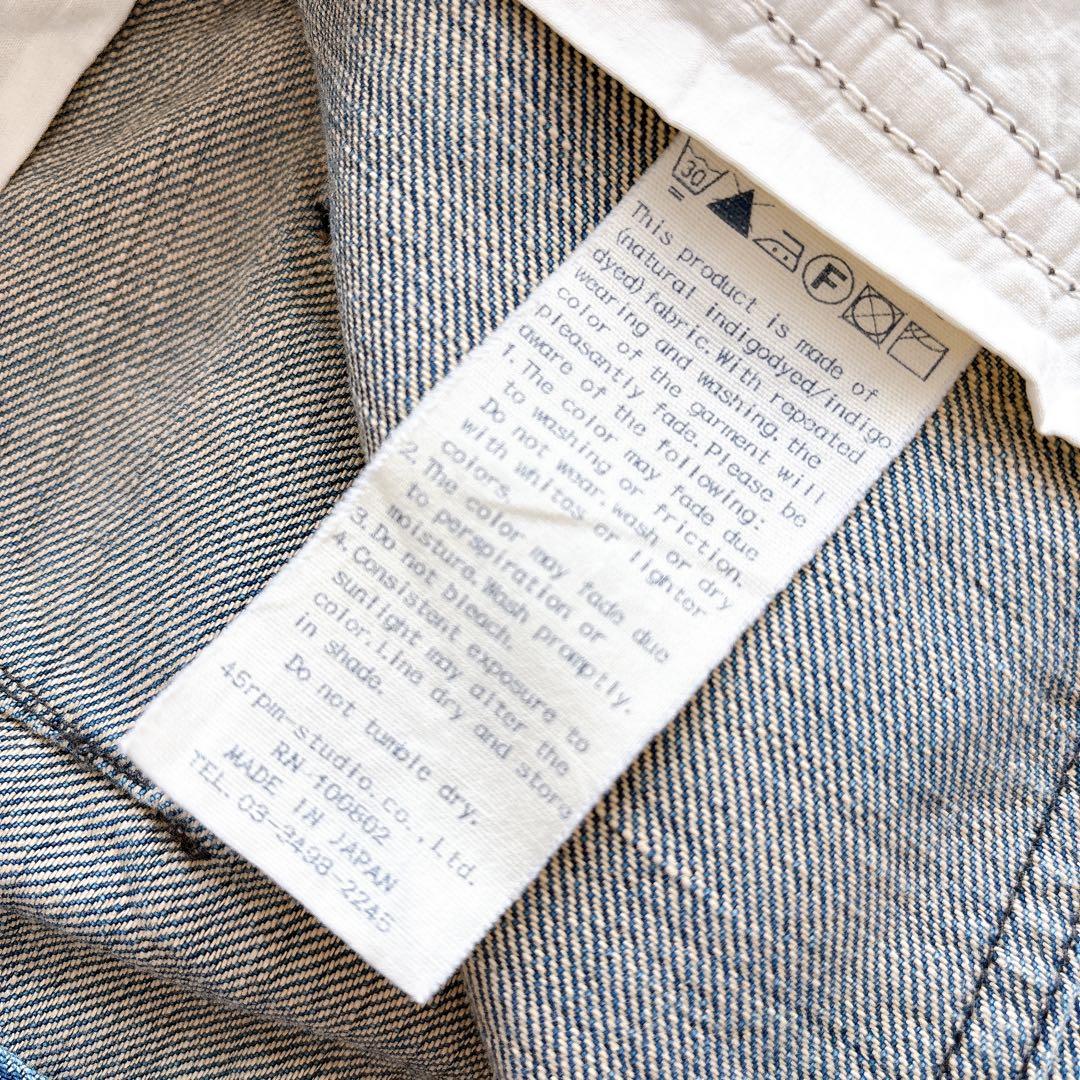 30 F
This product is made of
(natural indigodyed/indigo
dyed) fabric. With repeated
wearing and washing, the
color of the garment will
pleasantly fade. Please be
aware of the following:
1. The color may fade due
to washing or friction.
Do not wear, wash or dry
with whites or lighter
colors.
2. The color may fade due
to perspiration or
moisture. Wash promptly.
3. Do not bleach.
4. Consistent exposure to
sunlight may alter the
color. Line dry and store
in shade.
Do not tumble dry.
45rpm-studio.co.,Ltd.
RN-106802
MADE IN JAPAN
TEL. 03-3498-2245